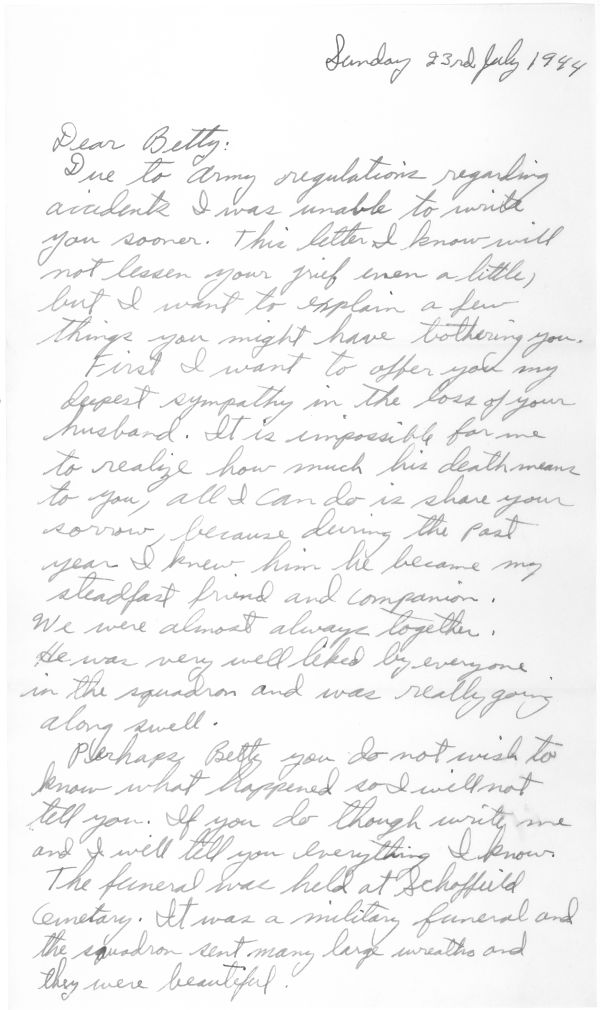 Sunday 23rd July 1944
Dear Betty:
Due to Army regulations regarding
accidents I was unable to write
you sooner. This letter I know will
not lessen your grief even a little,
but I want to explain a few
things you might have bothering you.
First I want to offer you my
deepest sympathy in the loss of your
husband. It is impossible for me
to realize how much his death means
to you, all I can do is share your
sorrow, because during the past
year I knew him he became my
steadfast friend and companion.
We were almost always together.
He was very well liked by everyone
in the squadron and was really going
along swell.
Perhaps Betty you do not wish to
know what happened so I will not
tell you. If you do though write me
and I will tell you everything I know.
The funeral was held at Schoffield
Cemetary. It was a military funeral and
the squadron sent many large wreaths and
they were beautiful.